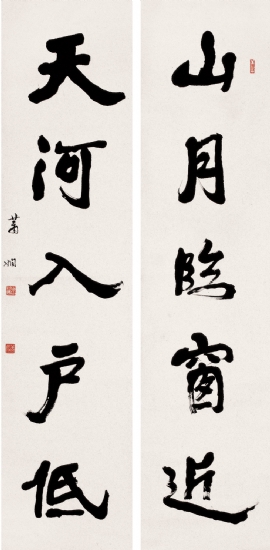 山月临窗近
天河入户低
萧娴